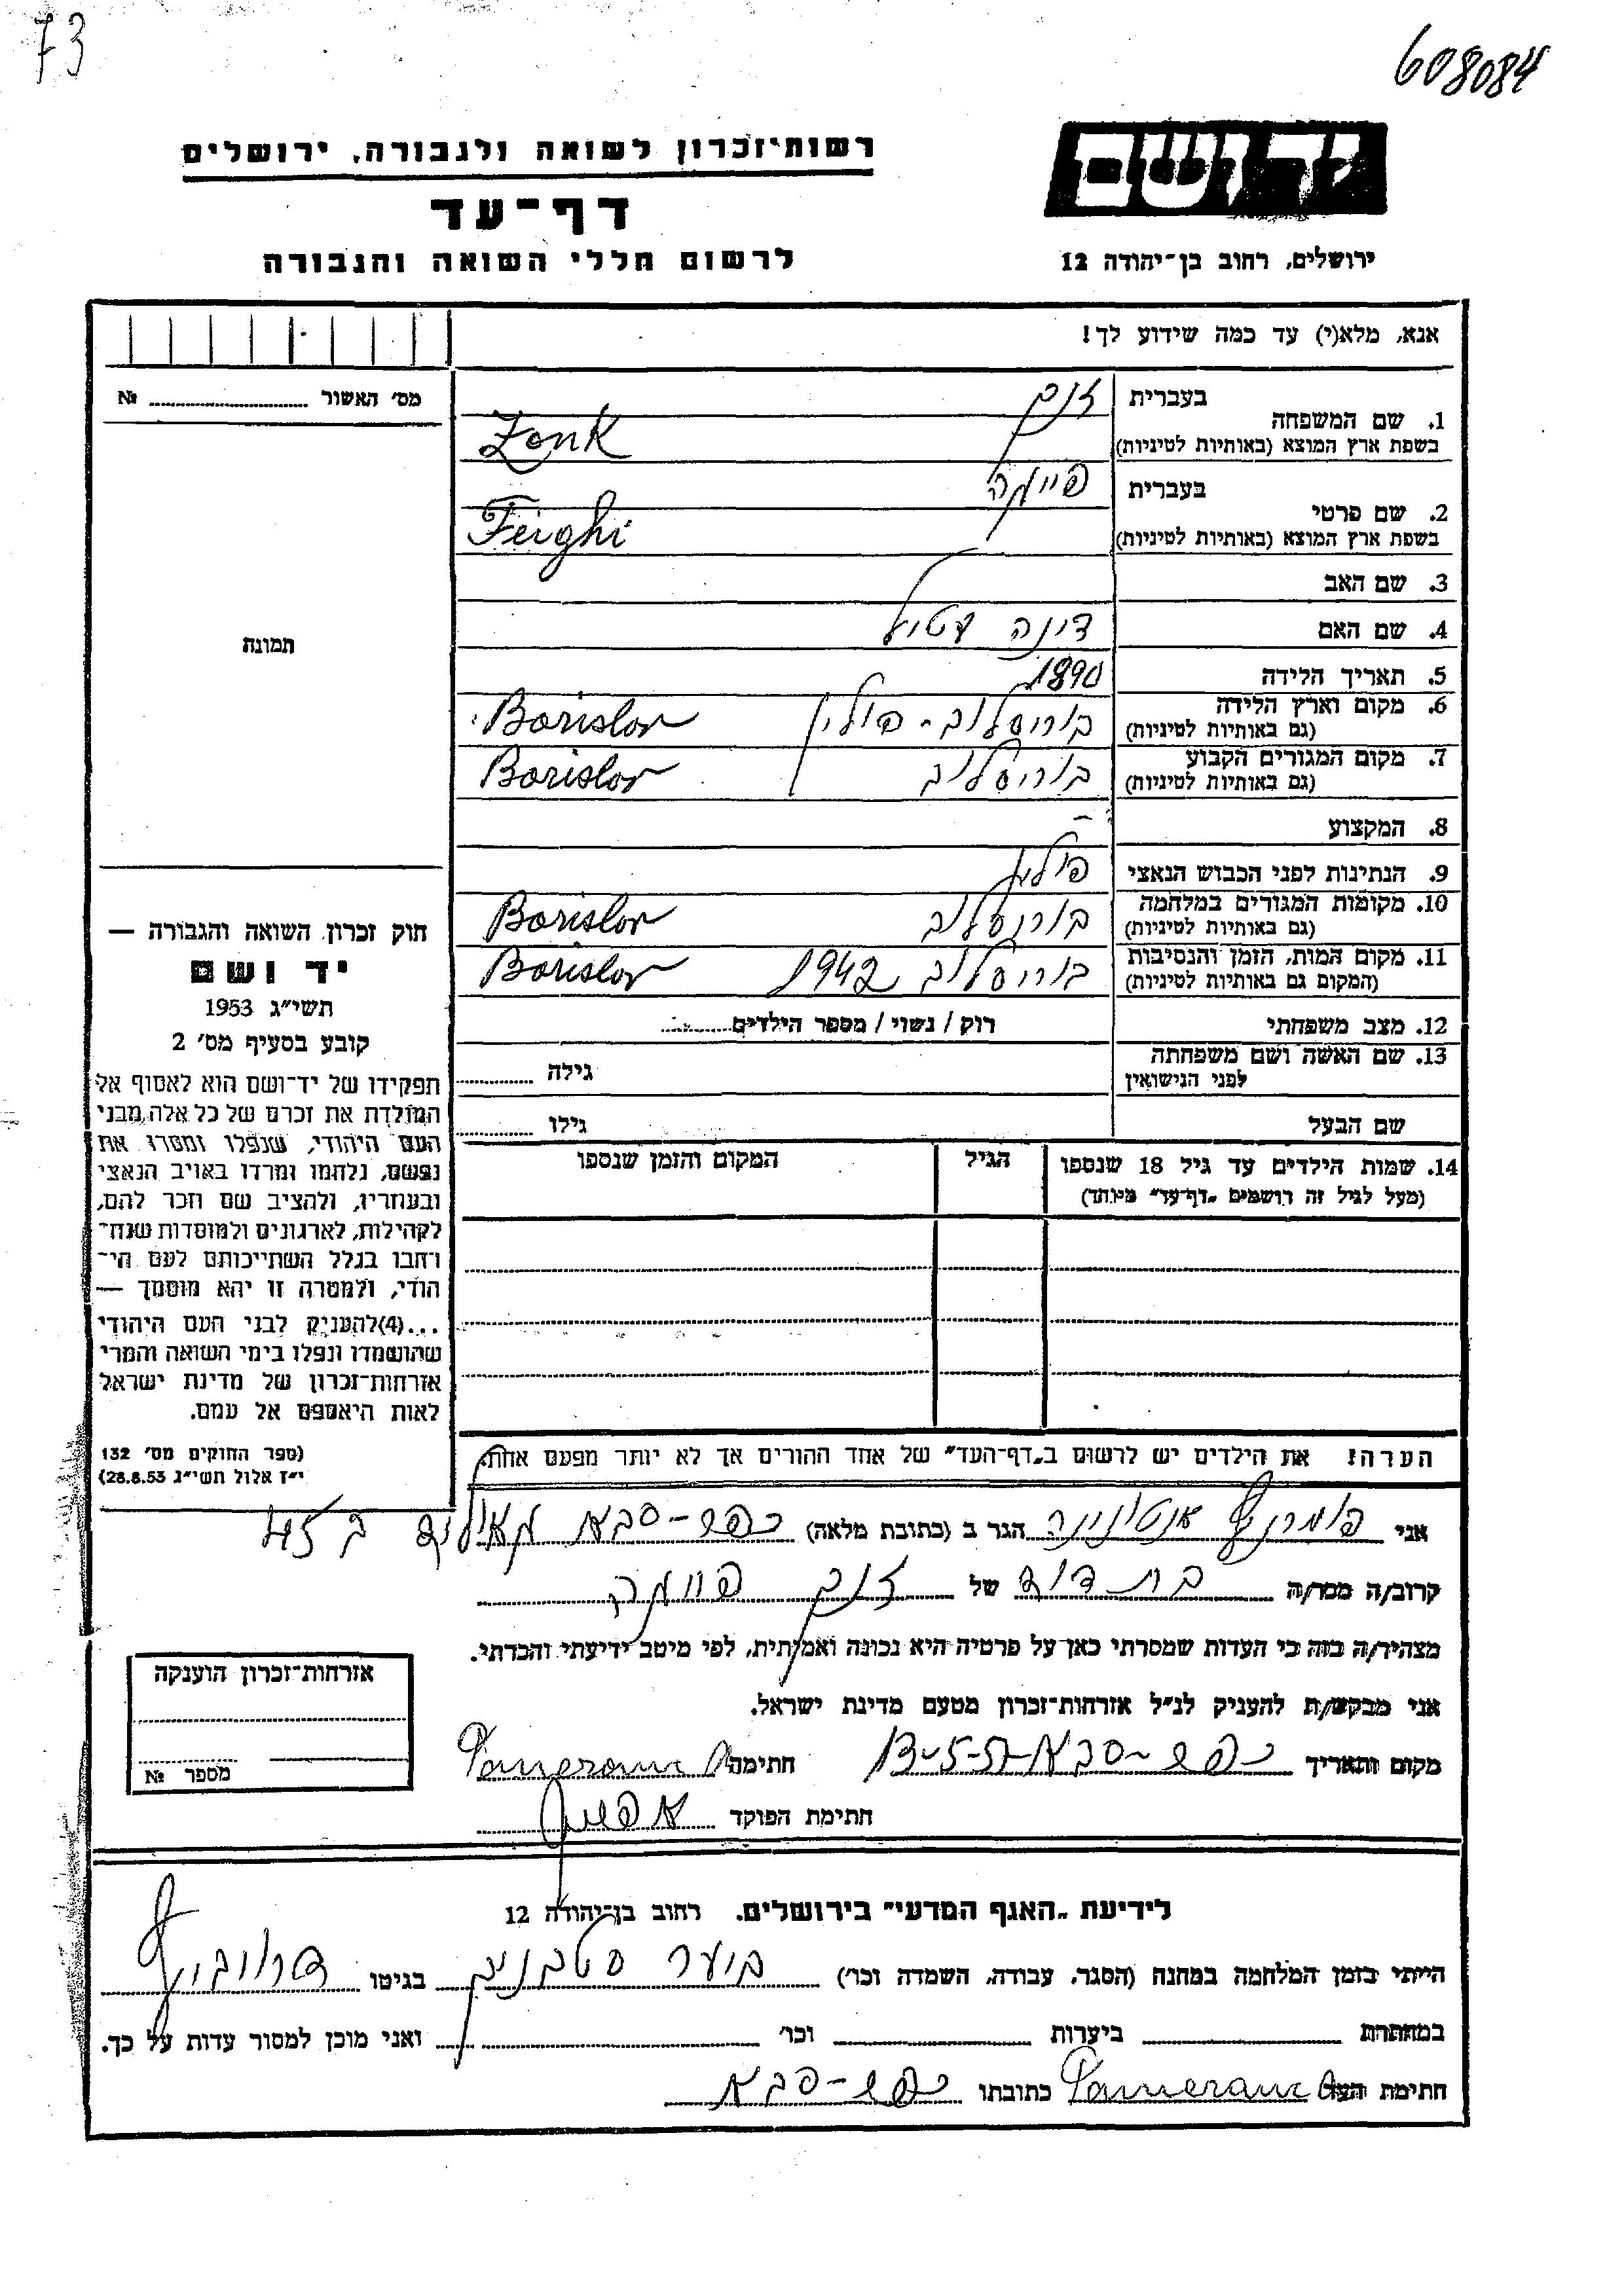 73
608084
יד ושם
רשות־זכרון לשואה ולגבורה, ירושלים
דף־עד
לרשום חללי השואה והגבורה
ירושלים, רחוב בן־יהודה 12
אנא, מלא(י) עד כמה שידוע לך!
מס׳ האשור № 
תמונה
1. שם המשפחה בעברית זנק
בשפת ארץ המוצא (באותיות לטיניות) Zonk
2. שם פרטי בעברית פייגה
בשפת ארץ המוצא (באותיות לטיניות) Feighi
3. שם האב
4. שם האם דינה
5. תאריך הלידה 1890
6. מקום וארץ הלידה (גם באותיות לטיניות) בוריסלוב - פולין Borislov
7. מקום המגורים הקבוע (גם באותיות לטיניות) בוריסלוב Borislov
8. המקצוע –
9. הנתינות לפני הכבוש הנאצי פולין
10. מקומות המגורים במלחמה (גם באותיות לטיניות) בוריסלוב Borislov
11. מקום המות, הזמן והנסיבות (המקום גם באותיות לטיניות) בוריסלוב 1942 Borislov
12. מצב משפחתי רוק / נשוי / מספר הילדים
13. שם האשה ושם משפחתה לפני הנישואין גילה
שם הבעל גילו
14. שמות הילדים עד גיל 18 שנספו (מעל לגיל זה רושמים „דף־עד״ מיוחד) הגיל המקום והזמן שנספו
הערה: את הילדים יש לרשום ב„דף־העד״ של אחד ההורים אך לא יותר מפעם אחת.
חוק זכרון השואה והגבורה —
יד ושם
תשי״ג 1953
קובע בסעיף מס׳ 2
תפקידו של יד־ושם הוא לאסוף אל
המולדת את זכרם של כל אלה מבני
העם היהודי, שנפלו ומסרו את
נפשם, נלחמו ומרדו באויב הנאצי
ובעוזריו, ולהציב שם וזכר להם,
לקהילות, לארגונים ולמוסדות שנח־
רבו בגלל השתייכותם לעם הי־
הודי, ולמטרה זו יהא מוסמך —
...(4) להעניק לבני העם היהודי
שהושמדו ונפלו בימי השואה והמרי
אזרחות־זכרון של מדינת ישראל
לאות היאספם אל עמם.
(ספר החוקים מס׳ 132
י״ז אלול תשי״ג 28.8.53)
אני פומרנץ אנטונינה הגר ב (כתובת מלאה) כפר-סבא
קרוב/ה מכר/ה בת דוד של זנק פייגה
מצהיר/ה בזה כי העדות שמסרתי כאן על פרטיה היא נכונה ואמיתית, לפי מיטב ידיעתי והכרתי.
אני מבקש/ת להעניק לנ״ל אזרחות־זכרון מטעם מדינת ישראל.
מקום ותאריך כפר-סבא 13-5-57 חתימה Pomeranc A
חתימת הפוקד
אזרחות־זכרון הוענקה
מספר №
לידיעת „האגף המדעי״ בירושלים. רחוב בן־יהודה 12
הייתי בזמן המלחמה במחנה (הסגר, עבודה, השמדה וכו׳) בגיטו
במחתרת ביערות וכו׳ ואני מוכן למסור עדות על כך.
חתימת העד Pomeranc A כתובתו כפר-סבא